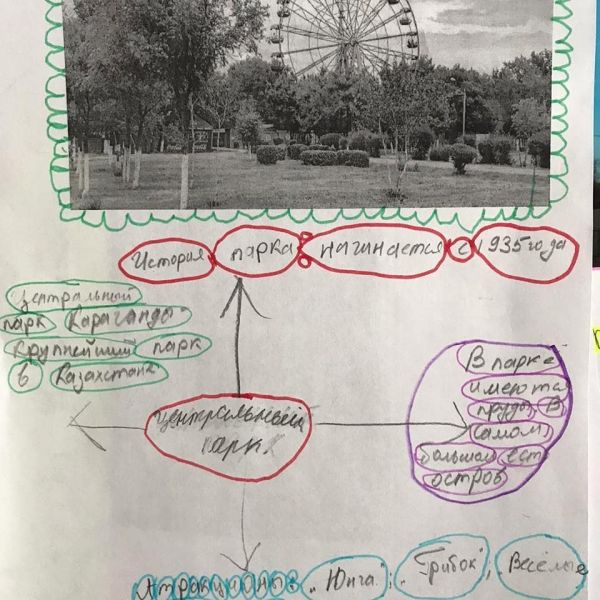 История парка начинается с 1935 года
Центральный
парк Караганды
крупнейший парк
в Казахстане
Центральный
парк
В парке
имеются
пруды, В
самом
большом ест
остров
Атракционы "Юнга", "Грибок", Весёлые